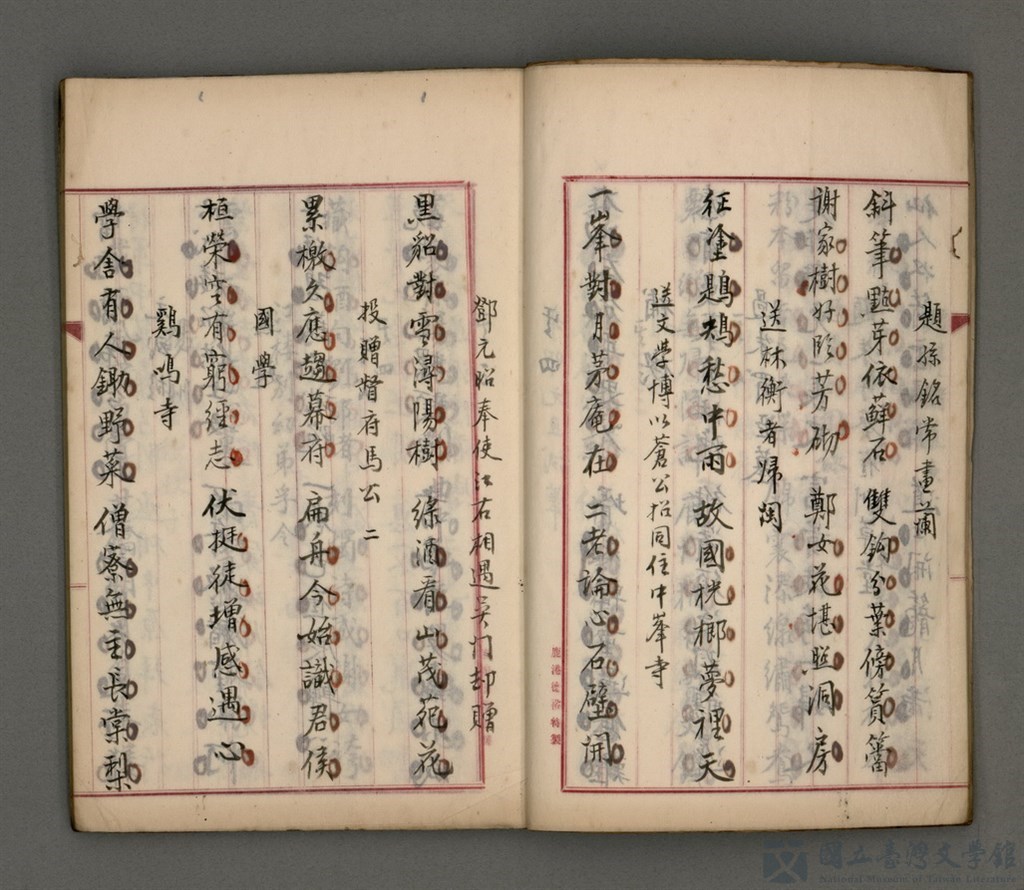 題孫銘常畫蘭
斜筆點芽依蘚石 雙鉤分葉傍篔簹
謝家樹好臨芳砌 鄭女花堪照洞房
送林衡者歸閩
征塗鶗鴂愁中雨 故國桄榔夢裡天
送文學博以蒼公招同住中峯寺
一峯對月茅庵在 二老論心石壁開
鹿港 特製
鄧元昭奉使江右相遇吳门却贈
黑貂對雪潯陽樹 綠酒看山茂苑花
投贈督府馬公 二
累檄久應趨幕府 扁舟今始識君侯
國學
桓榮空有窮經志 伏挺徒增感遇心
鷄鳴寺
學舍有人鋤野菜 僧寮無主長棠梨
國立臺灣文學館
National Museum of Taiwan Literature